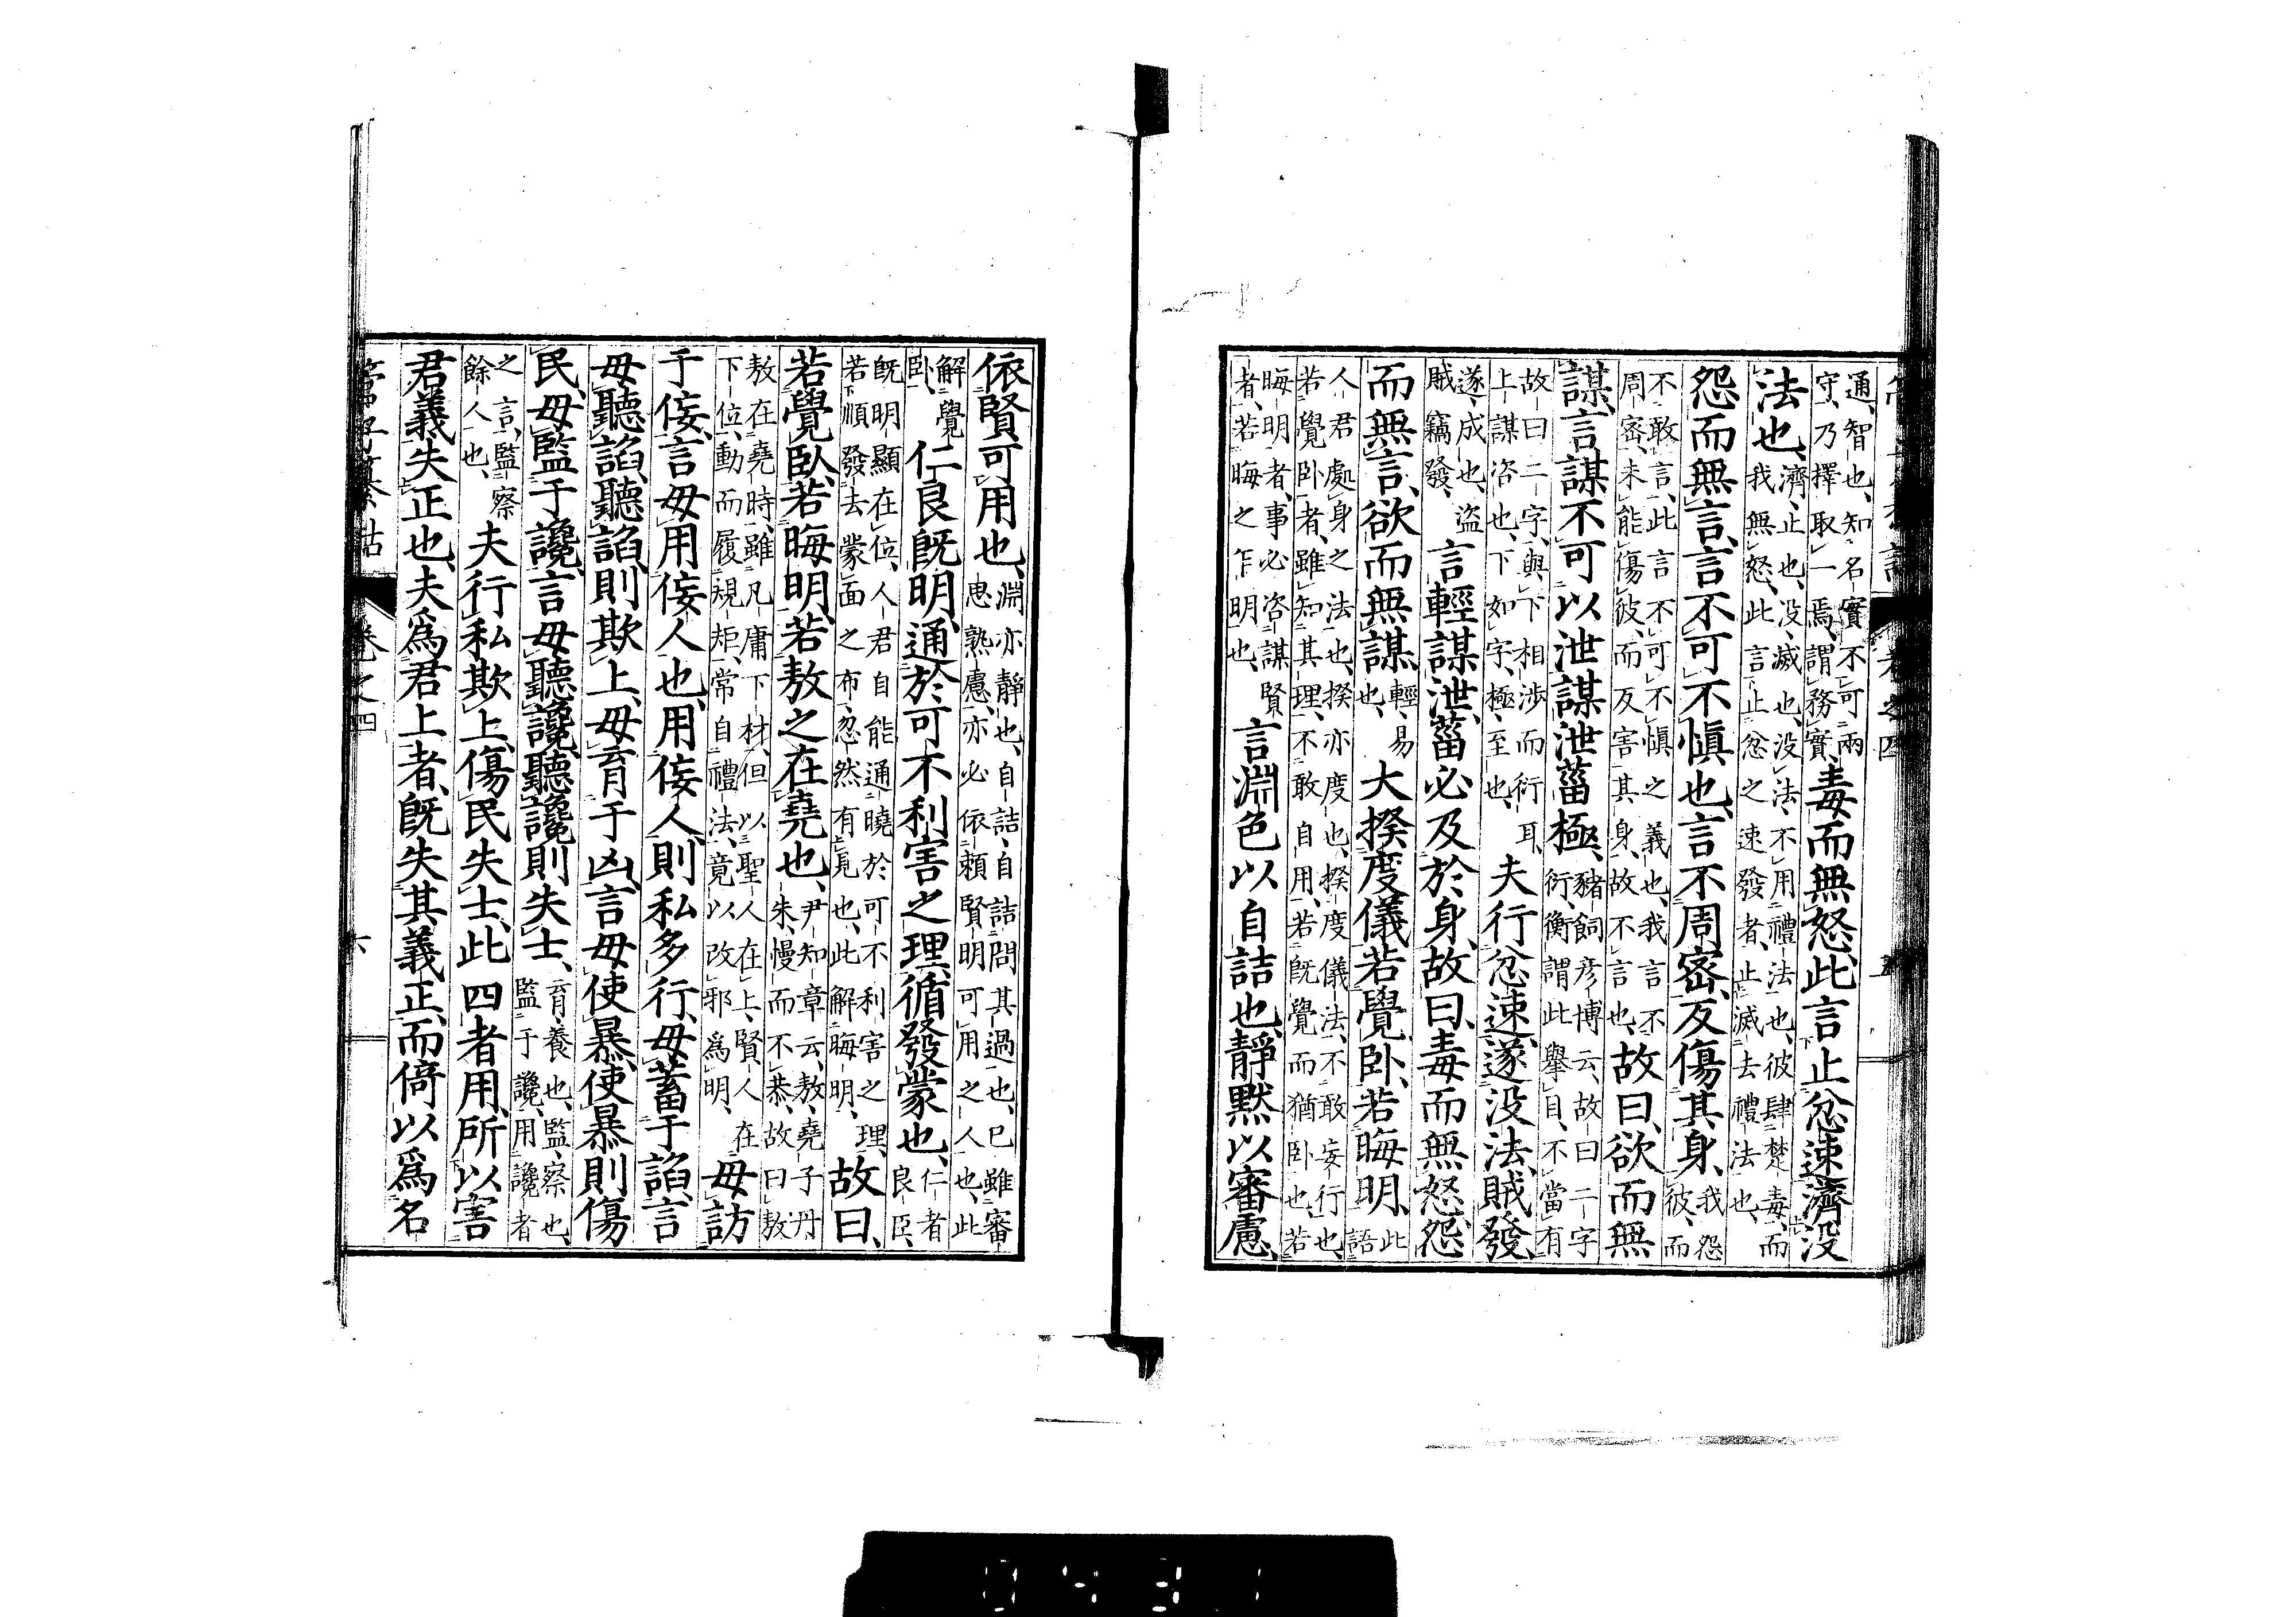 通、智也、知名實不可兩
守、乃擇取一焉、謂務實、毒而無怒、此言止忿速濟没
法也、濟、止也、没、滅也、没法、不用禮法也、彼肆楚毒、而
我無怒、此言止忿之速發者、止滅去禮法也、
怨而無言、言不可不愼也、言不周密、反傷其身、我怨
彼、而
不敢言、此言不可不愼之義也、我言不
周密、未能傷彼、而反害其身、故不言也、故曰、欲而無
謀、言謀不可以泄、謀泄菑極、豬飼彦博云、故曰二字
衍、衡謂此擧目、不當有
故曰二字、與下相渉而衍耳、
上謀咨也、下如字、極、至也、夫行忿速、遂没法、賊發、
遂、成也、盗
賊竊發、言輕謀泄、菑必及於身、故曰、毒而無怒、怨
而無言、欲而無謀、輕、易
也、大揆度儀、若覺卧、若晦明、此
語
人君處身之法也、揆亦度也、揆度儀法、不敢妄行也、
若覺卧者、雖知其理、不敢自用、若既覺而猶卧也、若
晦明者、事必咨謀賢
者、若晦之乍明也、言淵色以自詰也、靜默以審慮、
依賢可用也、淵亦靜也、自詰、自詰問其過也、已雖審
思熟慮、亦必依賴賢明可用之人也、此
解覺
卧、仁良既明、通於可不利害之理、循發蒙也、仁者
良臣、
既明顯在位、人君自能通曉於可不利害之理、
若順發去蒙面之布、忽然有見也、此解晦明、故曰、
若覺臥、若晦明、若敖之在堯也、尹知章云、敖、堯子丹
朱、慢而不恭、故曰敖
敖在堯時、雖凡庸下材、但以聖人在上、賢人在
下位、動而履規矩、常自禮法、竟以改邪爲明、毋訪
于佞、言毋用佞人也、用佞人、則私多行、毋蓄于諂、言
毋聽諂、聽諂則欺上、毋育于凶、言毋使暴、使暴則傷
民、毋監于讒、言毋聽讒、聽讒則失士、育、養也、監、察也、
監于讒、用讒者
之言、監察
餘人也、夫行私欺上、傷民失士、此四者用、所以害
君義失正也、夫爲君上者、既失其義正、而倚以爲名
管子纂詁
卷之四
六